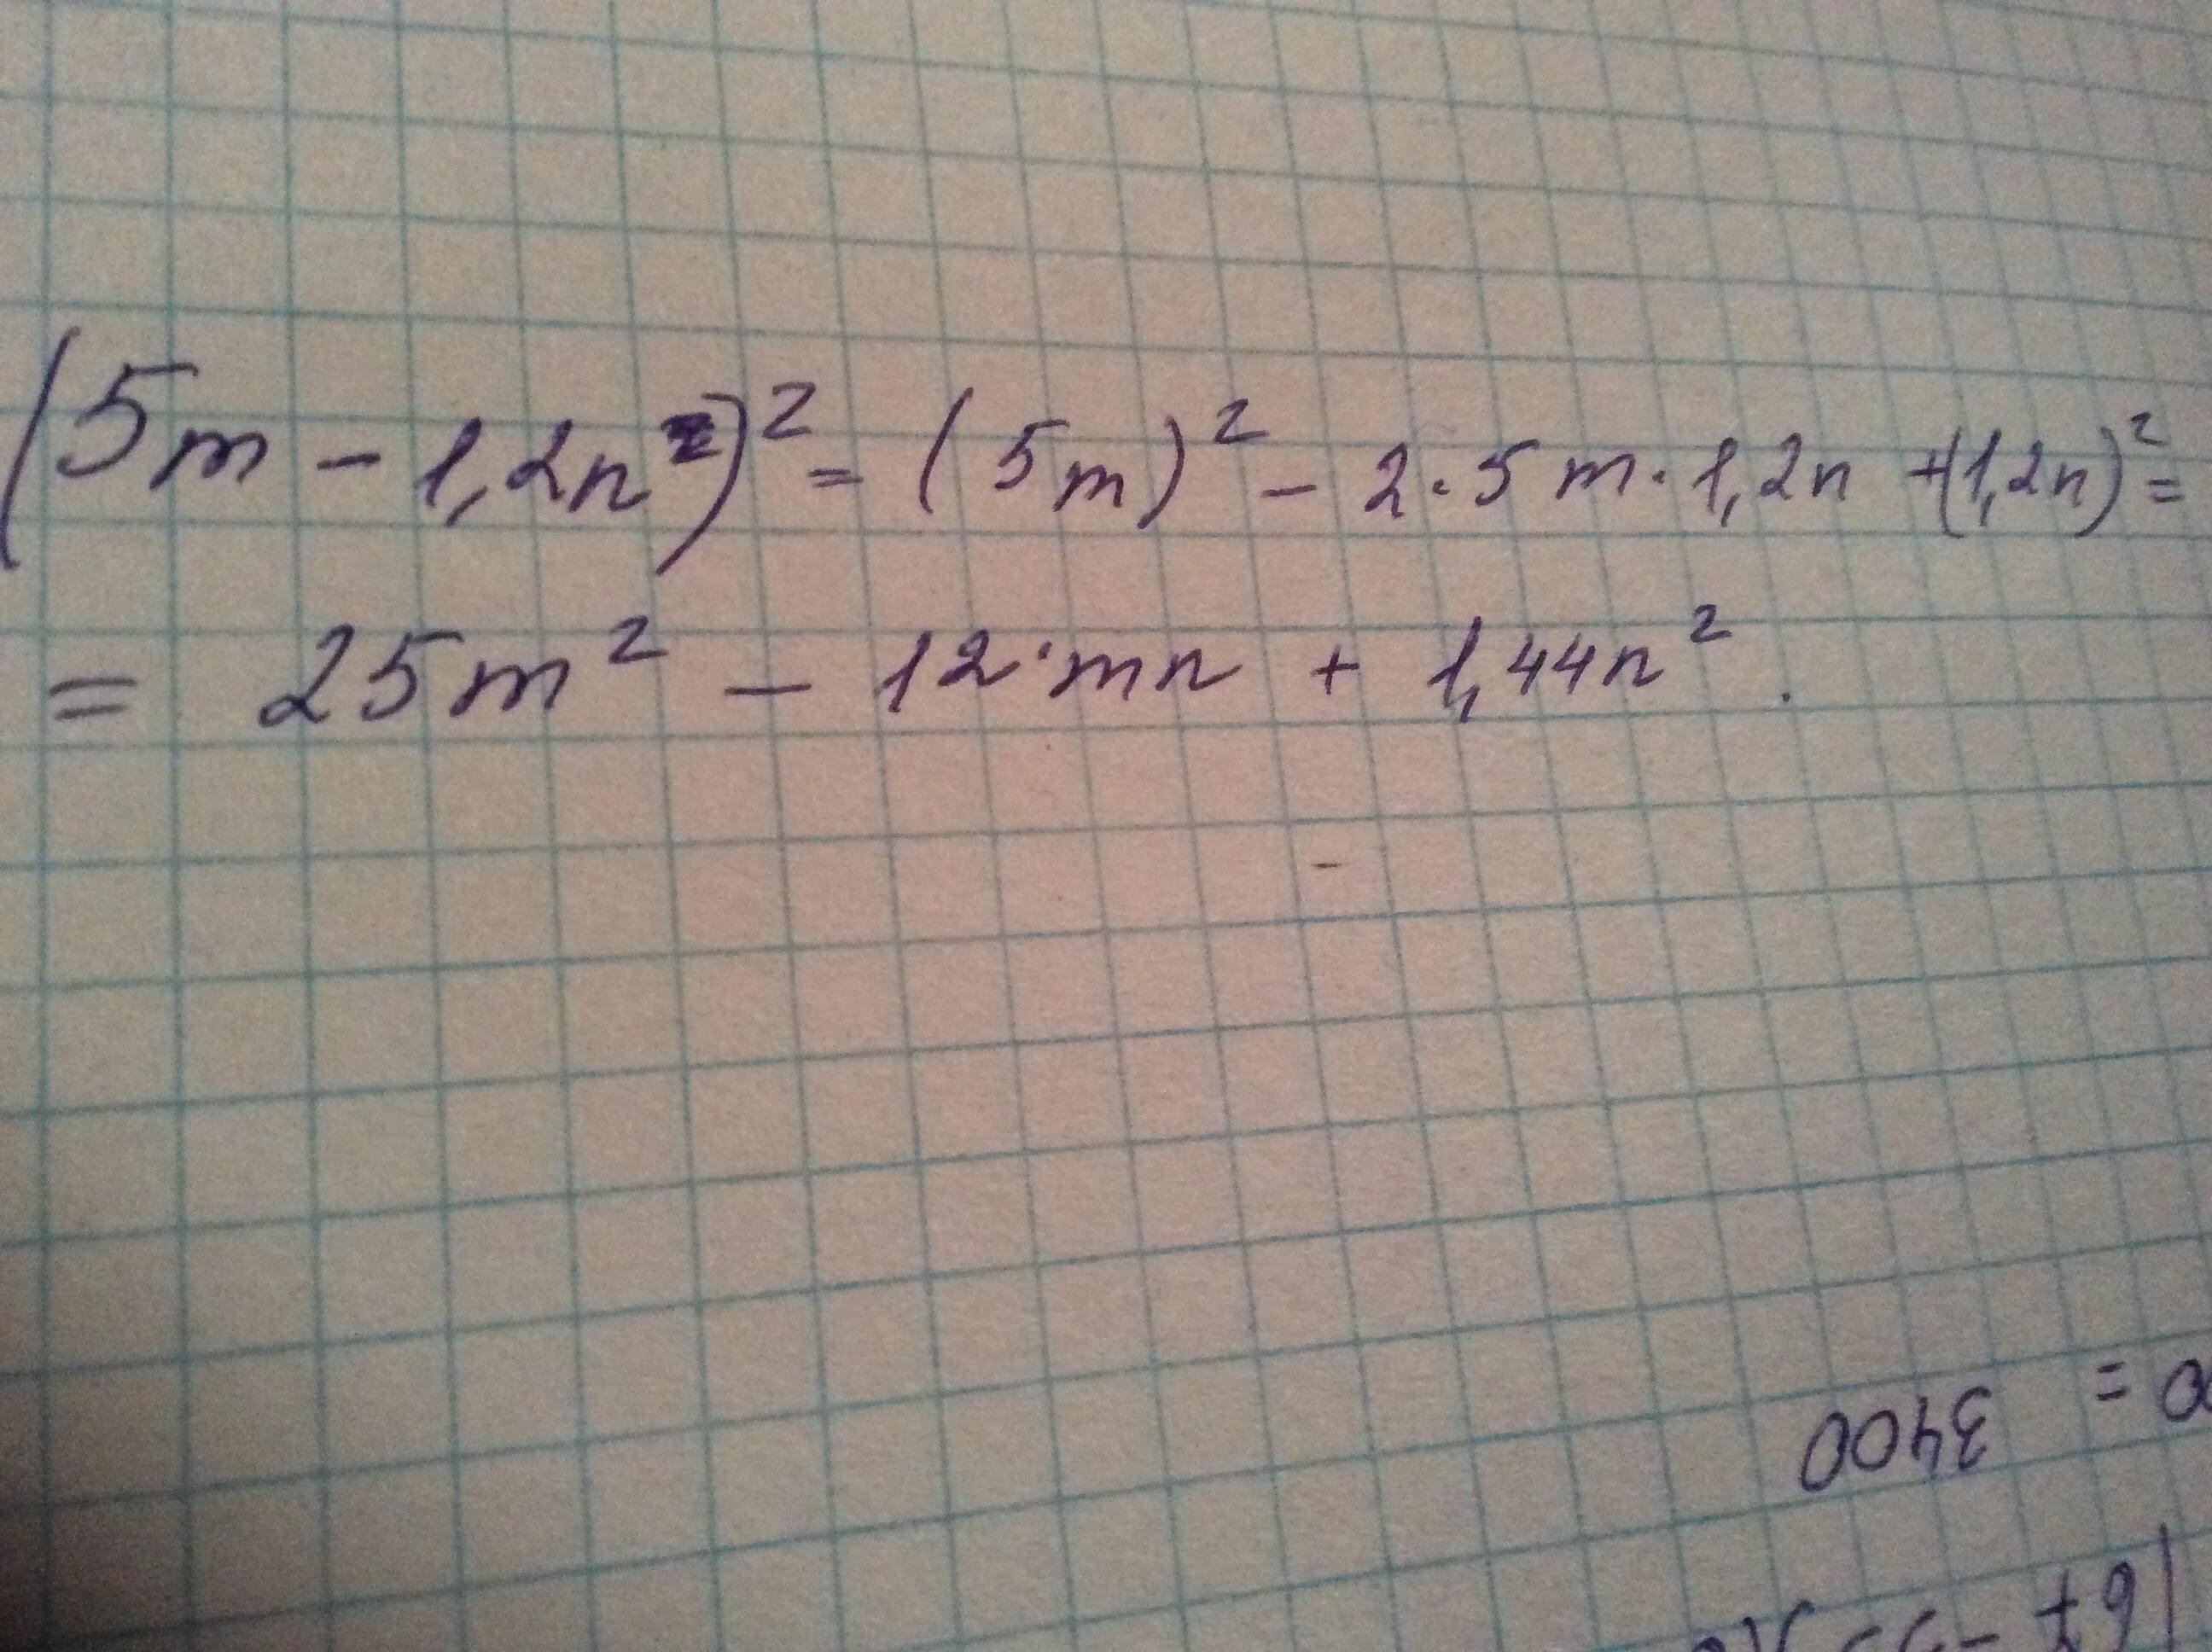 (5m - 1,2n)² = (5m)² - 2·5m·1,2n + (1,2n)² =
= 25m² - 12·mn + 1,44n².
= 3400